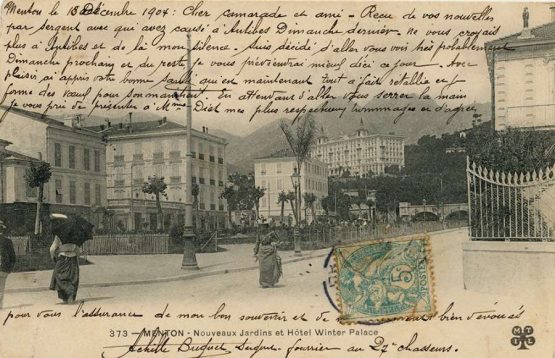 Menton le 13 Décembre 1904 : Cher camarade et ami - Recu de vos nouvelles
par sergent avec qui avez causé à Antibes Dimanche dernier. ne vous croyais
plus à Antibes et de là mon silence. Suis décidé d'aller vous voir très probablement
Dimanche prochain et du reste je vous préviendrai mieux d'ici ce jour. Avec
plaisir ai appris votre bonne santé qui est maintenant tout à fait rétablie et
forme des vœux pour son maintient. En attendant d'aller vous serrer la main
je vous prie de présenter à Mme mes plus respectueux hommages et d'agréer
5c
POSTES
pour vous l'assurance de mon bon souvenir et de mes sentiments bien dévoués
373 - MENTON - Nouveaux Jardins et Hôtel Winter Palace
Achille Sergent fourrier au 27e chasseurs.